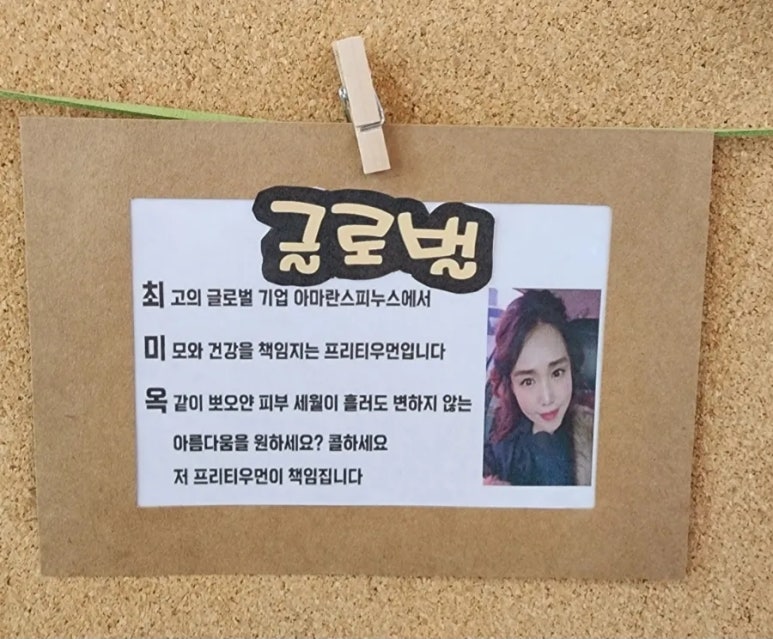 글로벌
최고의 글로벌 기업 아마란스피누스에서
미모와 건강을 책임지는 프리티우먼입니다
옥같이 뽀오얀 피부 세월이 흘러도 변하지 않는
아름다움을 원하세요? 콜하세요
저 프리티우먼이 책임집니다